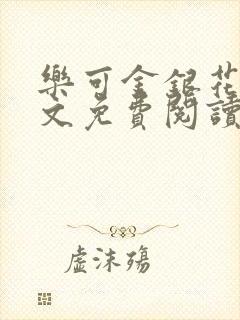 樂可金銀花
文免費閱讀
虛沫殤